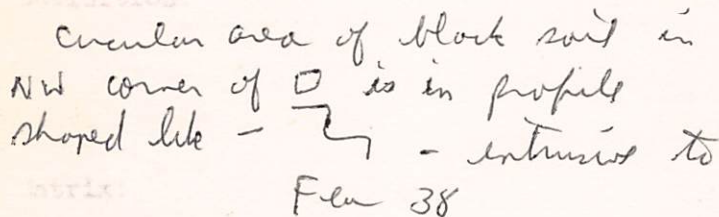 circular area of black soil in
NW corner of □ is in profile
shaped like - - intrusive to
Fea 38